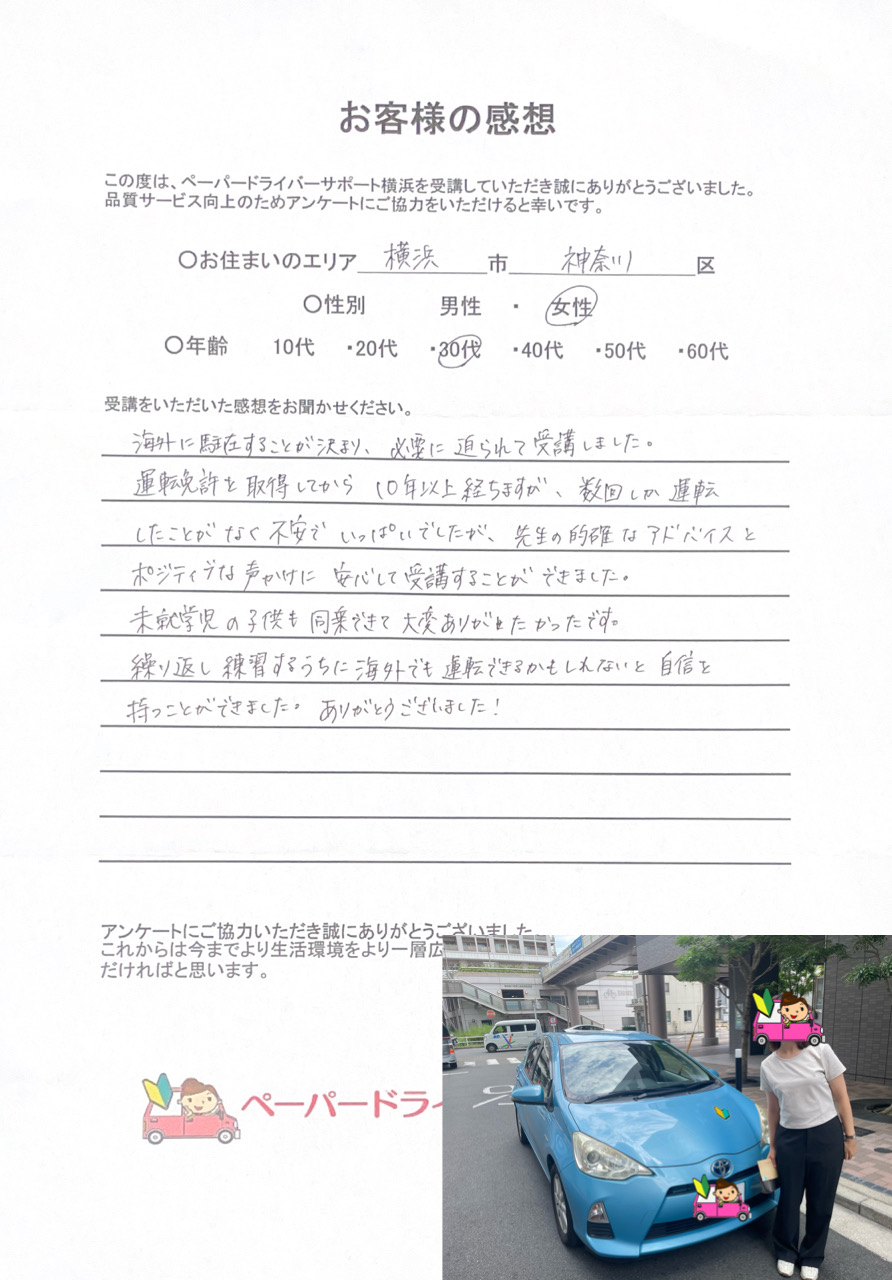 お客様の感想
この度は、ペーパードライバーサポート横浜を受講していただき誠にありがとうございました。
品質サービス向上のためアンケートにご協力をいただけると幸いです。
〇お住まいのエリア 横浜 市 神奈川 区
〇性別 男性 ・ 女性
〇年齢 10代 ・20代 ・30代 ・40代 ・50代 ・60代
受講をいただいた感想をお聞かせください。
海外に駐在することが決まり、必要に迫られて受講しました。
運転免許を取得してから 10年以上経ちますが、数回しか運転
したことがなく不安でいっぱいでしたが、先生の的確なアドバイスと
ポジティブな声かけに 安心して受講することができました。
未就学児の子供も同乗できて大変ありがたかったです。
繰り返し練習するうちに海外でも運転できるかもしれないと自信を
持つことができました。ありがとうございました!
アンケートにご協力いただき誠にありがとうございました。
これからは今までより生活環境をより一層広
だければと思います。
ペーパードライ